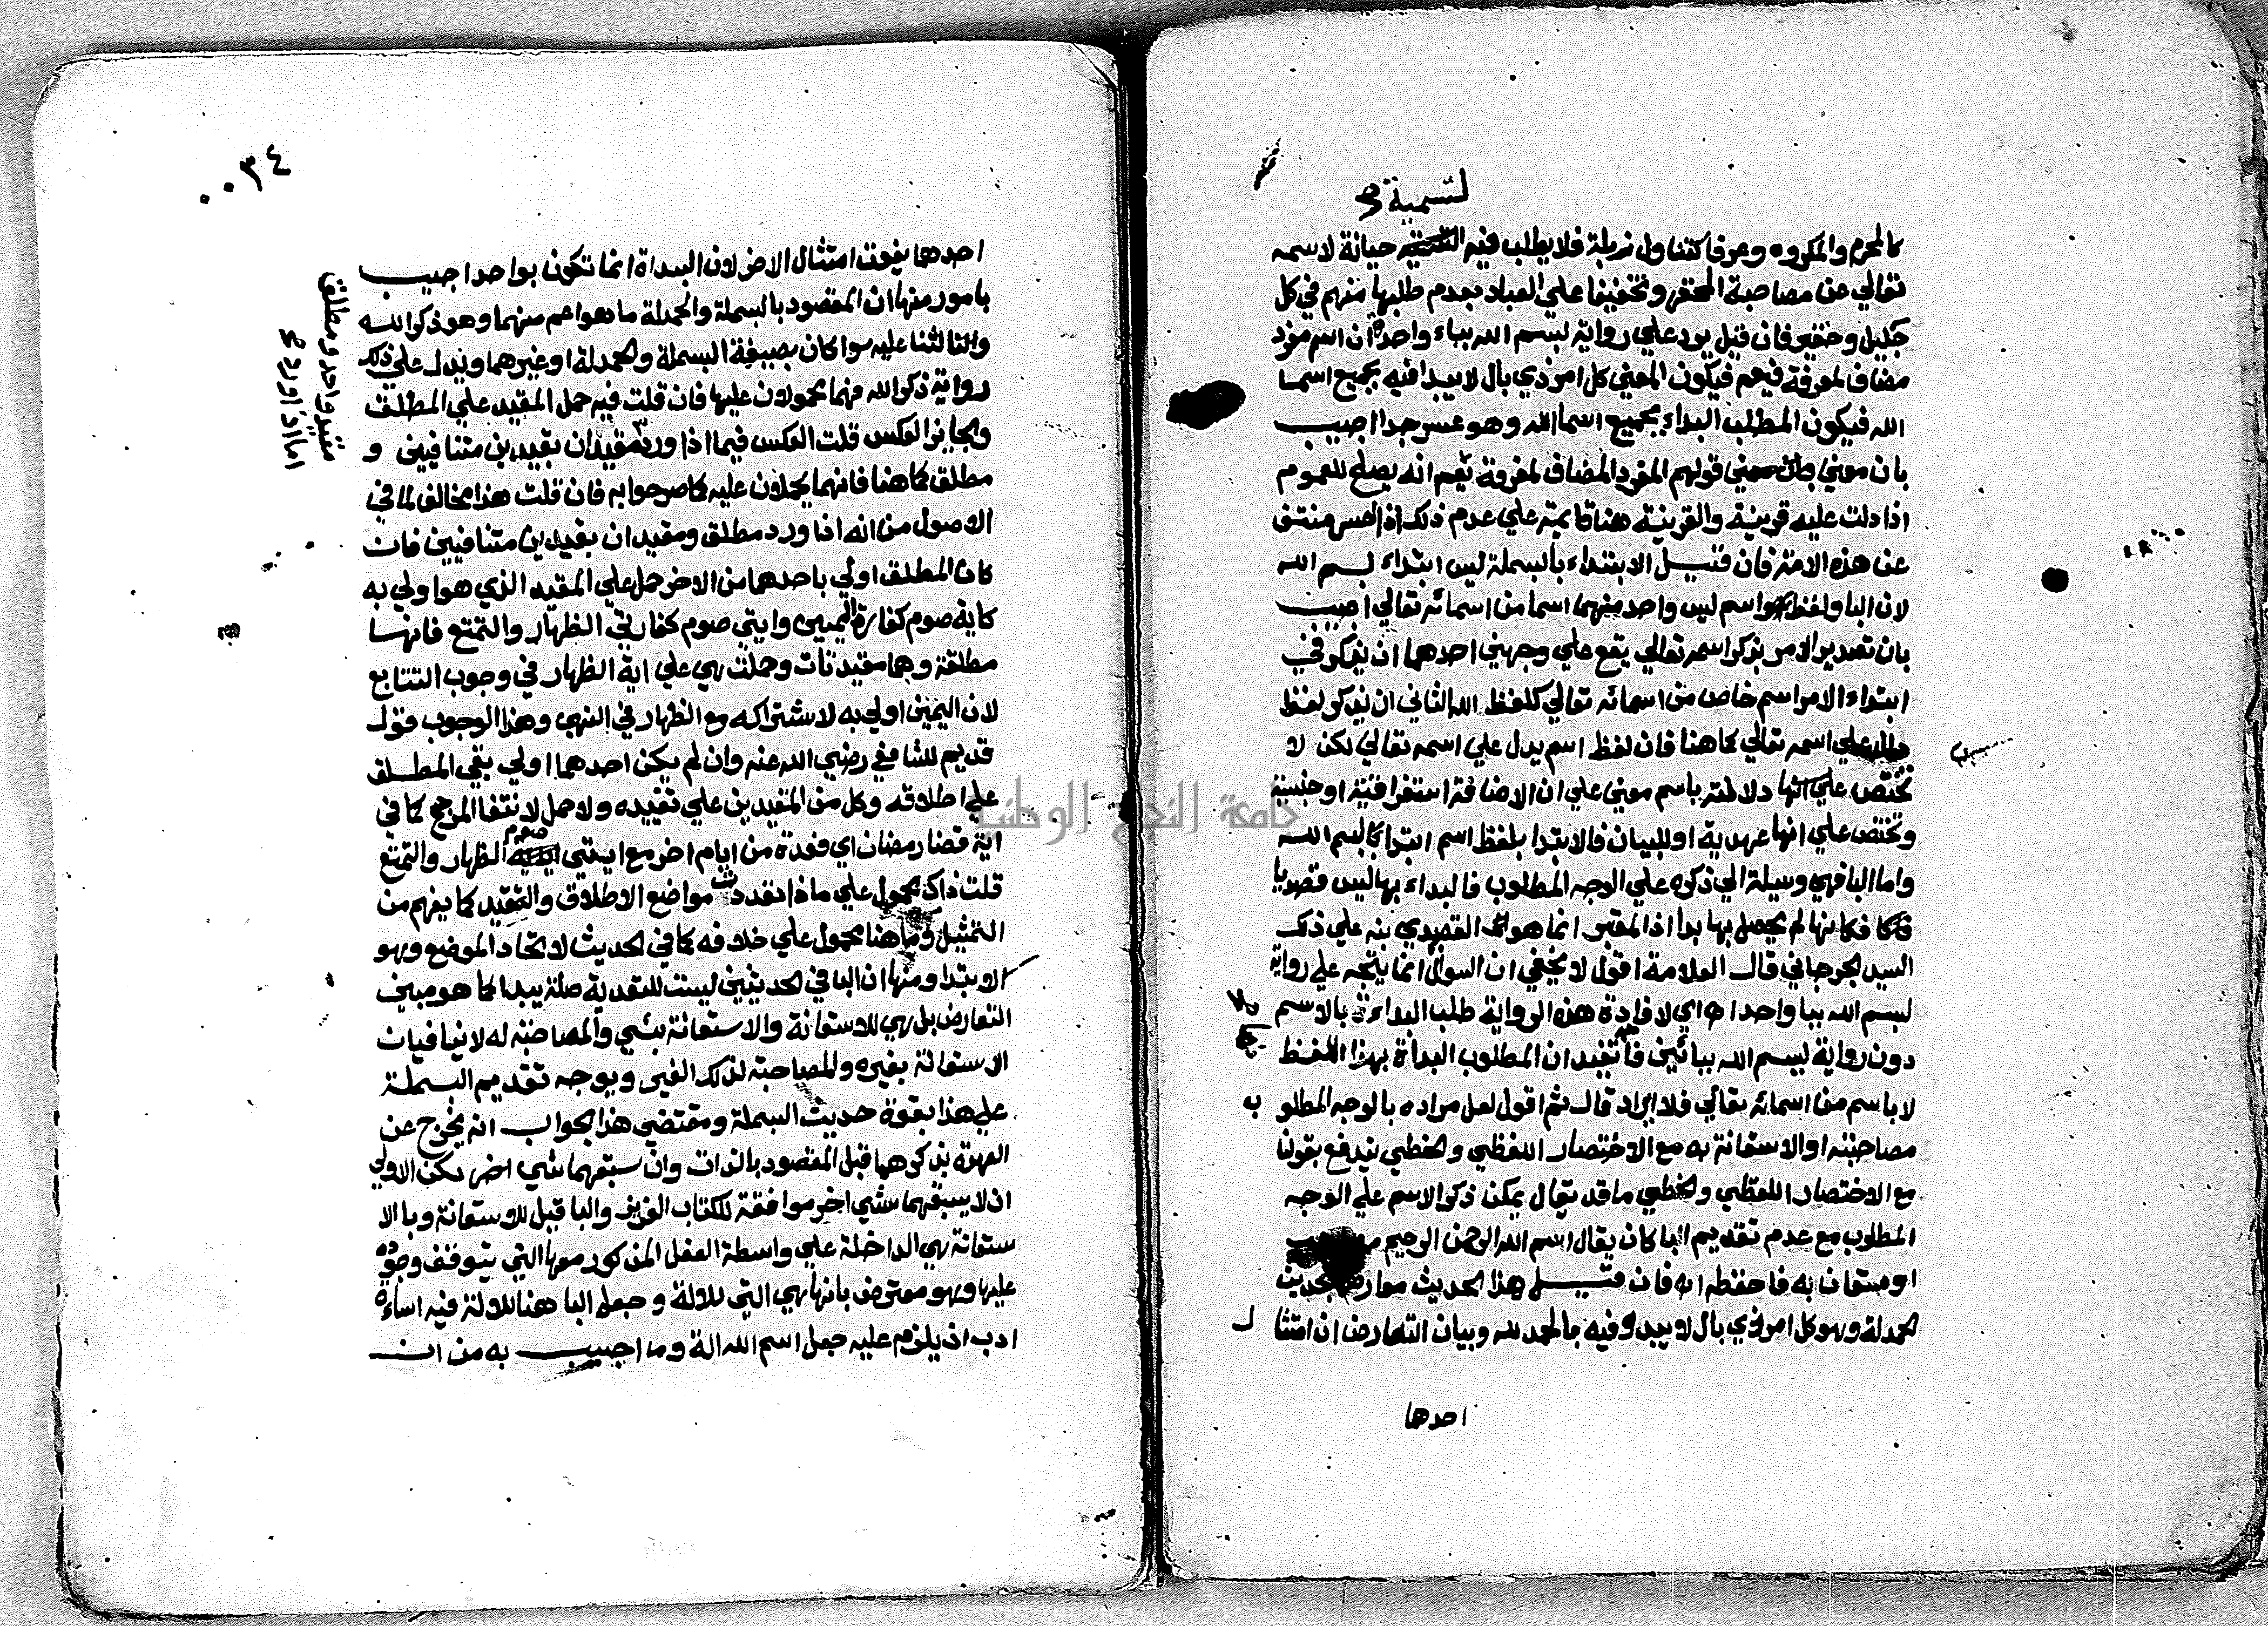 لتسمية صح
كالمحرم والمكروه وعرفا كتناول زبلة فلا يطلب فيه صيانة لاسمه
تعالي عن مصاحبة المحقر وتخفيفا علي العباد بعدم طلبها منهم في كل
جليل وحقير فان قيل يرد علي رواية لبسم الله بباء واحدة ان اسم مفرد
مضاف لمعرفة فيعم فيكون المعني كل امر ذي بال لا يبدا فيه بجميع اسما
الله فيكون المطلب البداء بجميع اسما الله وهو عسر جدا اجيب
بان معني قولهم المفرد المضاف لمعرفة يعم انه يصلح للعموم
اذا دلت عليه قرينة والقرينة هنا قايمة علي عدم ذلك اذ العسر منتف
عن هذه الامة فان قيل الابتداء بالبسملة ليس ابتداء بسم الله
لان البا ولفظ اسم ليس واحد منهما اسما من اسمائه تعالي اجيب
بان تصدير الامر بذكر اسمه تعالي يقع علي وجهين احدهما ان يذكر في
ابتداء الامر اسم خاص من اسمائه تعالي كلفظ الله الثاني ان يذكر لفظ
دال علي اسمه تعالي كما هنا فان لفظ اسم يدل علي اسمه تعالي لكن لا
تختص دلالته باسم معين علي ان الاضافة استغراقية او جنسية
وتختص علي انها عهدية او للبيان فالابتدا بلفظ اسم ابتدا كا لبسم الله
واما البا فهي وسيلة الي ذكره علي الوجه المطلوب فالبداء بها ليس قصديا
فكانها لم يحصل بها بدا اذ المعتبر انما هو القصدي بنه علي ذلك
السيد الجرجاني قال العلامة اقول لا يخفي ان السؤال انما يتجه علي رواية
لبسم الله ببا واحدة اي لافادة هذه الرواية طلب البداءة بالاسم
دون رواية ببسم الله ببائين فانها تفيد ان المطلوب البداة بهذا اللفظ
لا باسم من اسمائه تعالي فلا ايراد قال ثم اقول لعل مراده بالوجه المطلو به
مصاحبته او الاستعانة به مع الاختصار اللفظي والخطي يندفع بقولنا
مع الاختصار اللفظي والخطي ما قد يقال يمكن ذكر الاسم علي الوجه
المطلوب مع عدم تقديم البا كان يقال اسم الله الرحمن الرحيم
او مستعان به فاحفظه اه فان قيل هذا الحديث معارض بحديث
الحمدلة وهو كل امر ذي بال لا يبدو فيه بالحمد لله وبيان التعارض ان امتثا ل
احدهما
٠٠٣٤
احدهما يفوت امتثال الاخر لان البداة انما تكون بواحد اجيب
بامور منها ان المقصود بالبسملة والحمدلة ما هو اعم منهما وهو ذكر الله
والثنا عليه سوا كان بصيغة البسملة والحمدلة او غيرهما ويدل علي ذلك
رواية ذكر الله فهما محمولان عليها فان قلت فيه حمل المقيد علي المطلق
والجايز العكس قلت العكس فيما اذا ورد مقيدان بقيدين متنافيين و
مطلق كما هنا فانهما يحملان عليه كما صرحوا به فان قلت هذا مخالف لما في
الاصول من انه اذا ورد مطلق ومقيدان بقيدين متنافيين فان
كان المطلق اولي باحدهما من الاخر حمل علي المقيد الذي هو اولي به
كاية صوم كفارة اليمين وايتي صوم كفارتي الظهار والتمتع فانها
مطلقة وهما مقيدتات وحملت هي علي اية الظهار في وجوب التتابع
لان اليمين اولي به لاشتراكه مع الظهار في النهي وهذا الوجوب قول
قديم للشافعي رضي الله عنه وان لم يكن احدهما اولي بقي المطلق
علي اطلاقه وكل من المقيدين علي تقييده ولا حمل لانتفا المرجح كما في
اية قضا رمضان اي فعدة من ايام اخر مع ايتي صوم الظهار والتمتع
قلت ذاك محمول علي ما اذا تعددت مواضع الاطلاق والتقييد كما يفهم من
التمثيل وما هنا محمول علي خلافه كما في الحديث لاتحاد الموضع وهو
الابتدا ومنها ان البا في الحديثين ليست للتعدية صلة يبدا كما هو مبني
التعارض بل هي للاستعانة والاستعانة بشي والمصاحبة له لا ينافيان
الاستعانة بغيره والمصاحبة لذلك الغير ويوجه تقديم البسملة
علي هذا بقوة حديث البسملة ومقتضي هذا الجواب انه يخرج عن
العهدة بذكرهما قبل المقصود بالذات وان سبقهما شي اخر لكن الاولي
ان لا يسبقهما شي اخر موافقة للكتاب العزيز والبا قبل للاستعانة وبا الا
ستعانة هي الداخلة علي واسطة الفعل المذكور معها التي يتوقف وجوده
عليها وهو معترض بانها هي التي للالة وجعل البا هنا للالة فيه اساءة
ادب اذ يلزم عليه جعل اسم الله الة وما اجيب به من ان
مقيد واحد ومطلق
اما اذا ورد ع